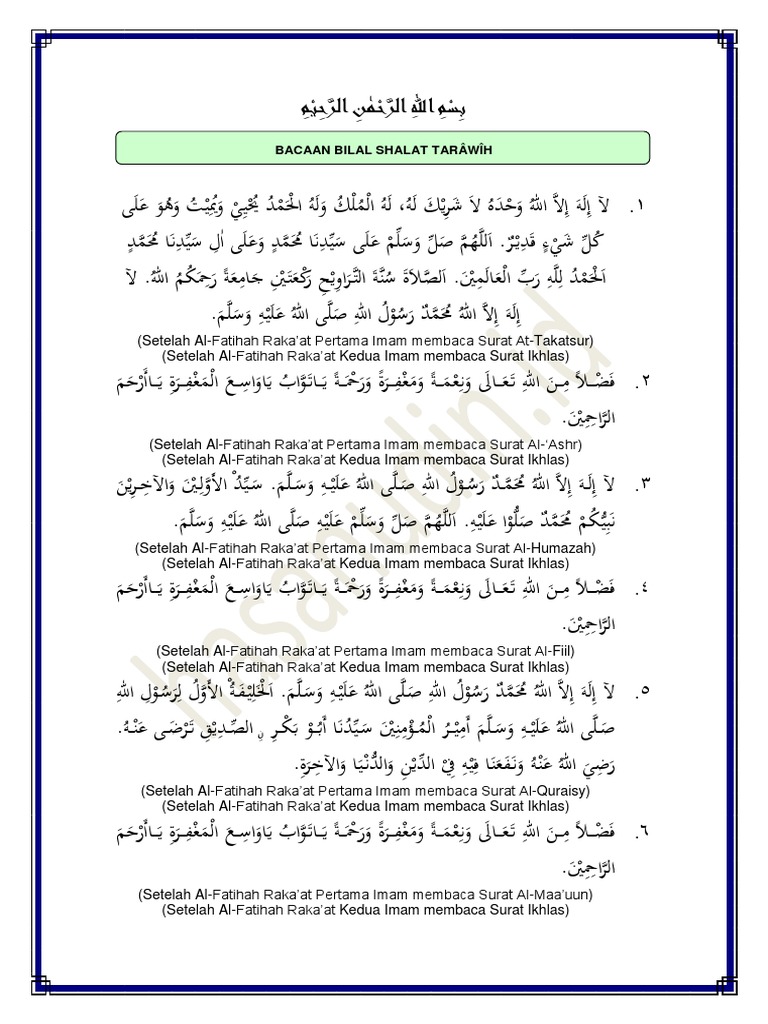 بِسْمِ اللهِ الرَّحْمٰنِ الرَّحِيْمِ
BACAAN BILAL SHALAT TARÂWÎH
١. لآ إِلَهَ إِلاَّ اللهُ وَحْدَهُ لاَ شَرِيْكَ لَهُ، لَهُ الْمُلْكُ وَلَهُ الْحَمْدُ يُحْيِيْ وَيُمِيْتُ وَهُوَ عَلَى
كُلِّ شَيْءٍ قَدِيْرٌ. اَللَّهُمَّ صَلِّ وَسَلِّمْ عَلَى سَيِّدِنَا مُحَمَّدٍ وَعَلَى اٰلِ سَيِّدِنَا مُحَمَّدٍ
اَلْحَمْدُ لِلَّهِ رَبِّ الْعَالَمِيْنَ. اَلصَّلاَةَ سُنَّةَ التَّرَاوِيْحِ رَكْعَتَيْنِ جَامِعَةً رَحِمَكُمُ اللهُ. لآ
إِلَهَ إِلاَّ اللهُ مُحَمَّدٌ رَسُوْلُ اللهِ صَلَّى اللهُ عَلَيْهِ وَسَلَّمَ.
(Setelah Al-Fatihah Raka’at Pertama Imam membaca Surat At-Takatsur)
(Setelah Al-Fatihah Raka’at Kedua Imam membaca Surat Ikhlas)
٢. فَضْلاً مِنَ اللهِ تَعَالَى وَنِعْمَةً وَمَغْفِرَةً وَرَحْمَةً يَاتَوَّابُ يَاوَاسِعَ الْمَغْفِرَةِ يَاأَرْحَمَ
الرَّاحِمِيْنَ.
(Setelah Al-Fatihah Raka’at Pertama Imam membaca Surat Al-‘Ashr)
(Setelah Al-Fatihah Raka’at Kedua Imam membaca Surat Ikhlas)
٣. لآ إِلَهَ إِلاَّ اللهُ مُحَمَّدٌ رَسُوْلُ اللهِ صَلَّى اللهُ عَلَيْهِ وَسَلَّمَ. سَيِّدُ الْأَوَّلِيْنَ وَالآخِرِيْنَ
نَبِيُّكُمْ مُحَمَّدٌ صَلُّوْا عَلَيْهِ. اَللَّهُمَّ صَلِّ وَسَلِّمْ عَلَيْهِ صَلَّى اللهُ عَلَيْهِ وَسَلَّمَ.
(Setelah Al-Fatihah Raka’at Pertama Imam membaca Surat Al-Humazah)
(Setelah Al-Fatihah Raka’at Kedua Imam membaca Surat Ikhlas)
٤. فَضْلاً مِنَ اللهِ تَعَالَى وَنِعْمَةً وَمَغْفِرَةً وَرَحْمَةً يَاتَوَّابُ يَاوَاسِعَ الْمَغْفِرَةِ يَاأَرْحَمَ
الرَّاحِمِيْنَ.
(Setelah Al-Fatihah Raka’at Pertama Imam membaca Surat Al-Fiil)
(Setelah Al-Fatihah Raka’at Kedua Imam membaca Surat Ikhlas)
٥. لآ إِلَهَ إِلاَّ اللهُ مُحَمَّدٌ رَسُوْلُ اللهِ صَلَّى اللهُ عَلَيْهِ وَسَلَّمَ. اَلْخَلِيْفَةُ الْأَوَّلُ لِرَسُوْلِ اللهِ
صَلَّى اللهُ عَلَيْهِ وَسَلَّمَ أَمِيْرُ الْمُؤْمِنِيْنَ سَيِّدُنَا أَبُوْ بَكْرٍ الصِّدِيْقِ تَرْضَى عَنْهُ.
رَضِيَ اللهُ عَنْهُ وَنَفَعَنَا فِيْهِ فِيْ الدِّيْنِ وَالدُّنْيَا وَالآخِرَةِ.
(Setelah Al-Fatihah Raka’at Pertama Imam membaca Surat Al-Quraisy)
(Setelah Al-Fatihah Raka’at Kedua Imam membaca Surat Ikhlas)
٦. فَضْلاً مِنَ اللهِ تَعَالَى وَنِعْمَةً وَمَغْفِرَةً وَرَحْمَةً يَاتَوَّابُ يَاوَاسِعَ الْمَغْفِرَةِ يَاأَرْحَمَ
الرَّاحِمِيْنَ.
(Setelah Al-Fatihah Raka’at Pertama Imam membaca Surat Al-Maa’uun)
(Setelah Al-Fatihah Raka’at Kedua Imam membaca Surat Ikhlas)
hasanudin.id